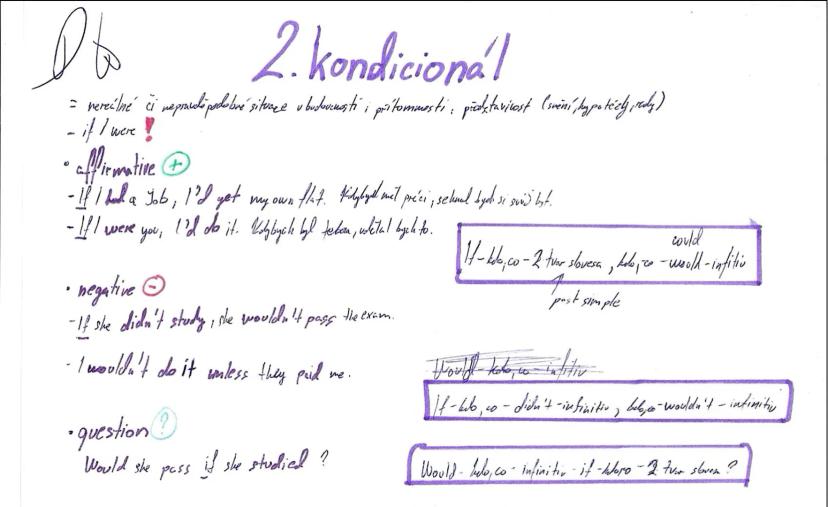 2. kondicionál
= nereálné či nepravděpodobné situace v budoucnosti i přítomnosti, představivost (snění, hypotézy, rady)
- if I were !
• affirmative +
- If I had a job, I'd get my own flat. Kdybych měl práci, sehnal bych si svůj byt.
- If I were you, I'd do it. Kdybych byl tebou, udělal bych to.
could
If - kdo, co - 2 tvar slovesa, kdo, co - would - infitiv
past simple
• negative -
- If she didn't study, she wouldn't pass the exam.
- I wouldn't do it unless they paid me.
Would - kdo, co - infitiv
If - kdo, co - didn't - infinitiv, kdo, co - wouldn't - infinitiv
• question ?
Would she pass if she studied ?
Would - kdo, co - infinitiv - if - - 2 tvar slovesa ?